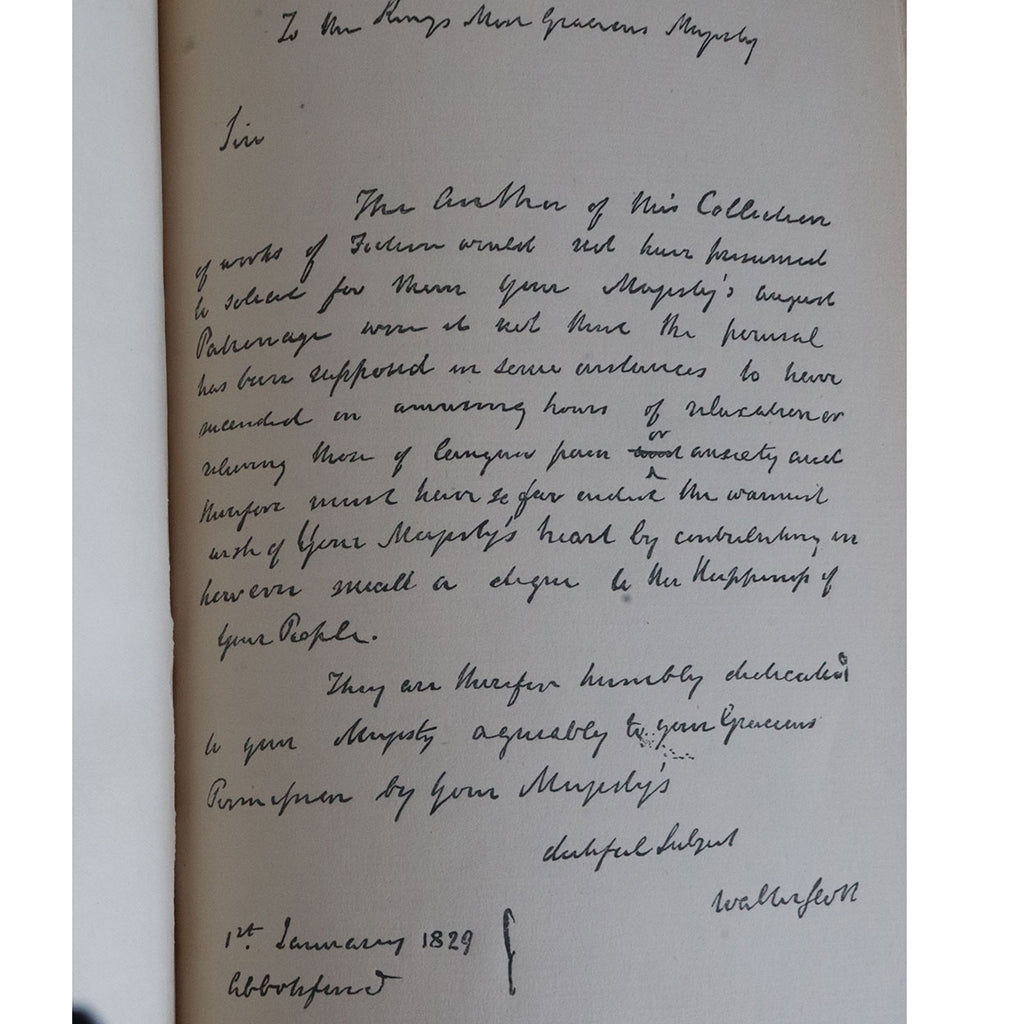 To the Kings Most Gracious Majesty
Sire
The Author of this Collection
of works of Fiction would not have presumed
to solicit for them Your Majesty's august
Patronage were it not that the perusal
has been supposed in some instances to have
succeeded in amusing hours of relaxation or
relieving those of languor pain or anxiety and
therefore must have so far aided the warmest
wish of Your Majesty's heart by contributing in
however small a degree to the Happiness of
Your People.
They are therefore humbly dedicated
to your Majesty agreeably to your Gracious
Permission by Your Majesty's
dutiful Subject
Walter Scott
1st. January 1829
Abbotsford